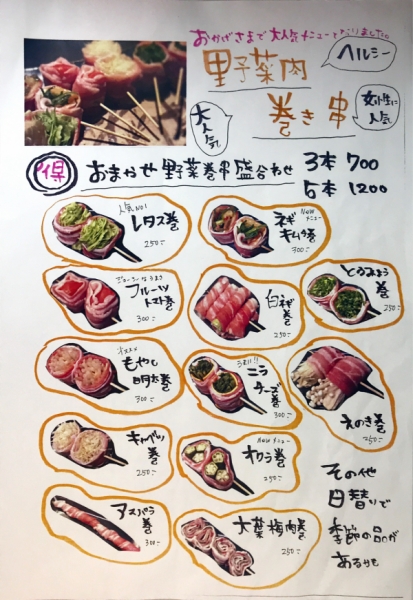 おかげさまで大人気メニューとなりました。
野菜肉
巻き串
ヘルシー
女性に
人気
大人気
得 おまかせ野菜巻串盛合わせ
3本 700
5本 1200
人気NO1
レタス巻
250-
Newメニュー
ネギ
キムチ巻
300-
とろみょう
巻
250-
ジューシーなうまさ
フルーツ
トマト巻
300-
白ネギ巻
250-
オススメ
もやし
明太巻
300-
うまい!!
ニラ
チーズ巻
300-
えのき巻
250-
キャベツ
巻
250-
Newメニュー
オクラ巻
250-
アスパラ
巻
300-
大葉梅肉巻
250-
その他
日替りで
季節の品が
あるかも